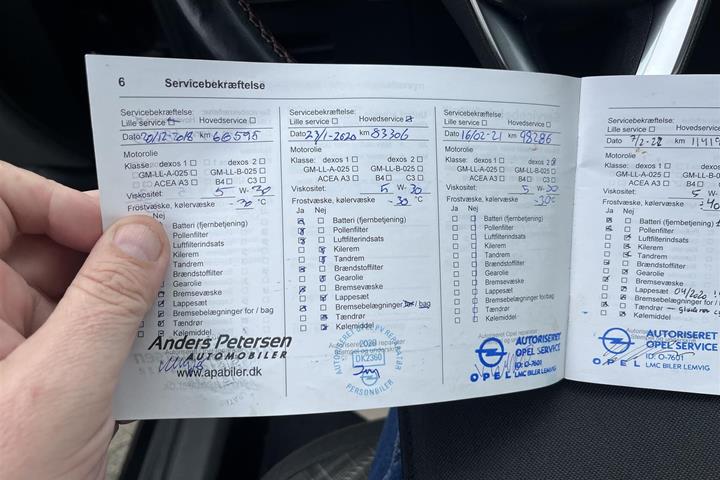 6 Servicebekræftelse
Servicebekræftelse:
Lille service Hovedservice
Dato 20/12-2018 km 68595
Motorolie
Klasse: dexos 1 dexos 2
GM-LL-A-025 GM-LL-B-025
ACEA A3 B4 C3
Viskositet: 5 W- 30
Frostvæske, kølervæske -30 °C
Nej
Batteri (fjernbetjening)
Pollenfilter
Luftfilterindsats
Kilerem
Tandrem
Brændstoffilter
Gearolie
Bremsevæske
Lappesæt
Bremsebelægninger for / bag
Tændrør
Kølemiddel
Anders Petersen
AUTOMOBILER
www.apabiler.dk
Servicebekræftelse:
Lille service Hovedservice
Dato 23/1-2020 km 83306
Motorolie
Klasse: dexos 1 dexos 2
GM-LL-A-025 GM-LL-B-025
ACEA A3 B4 C3
Viskositet: 5 W- 30
Frostvæske, kølervæske -30 °C
Ja Nej
Batteri (fjernbetjening)
Pollenfilter
Luftfilterindsats
Kilerem
Tandrem
Brændstoffilter
Gearolie
Bremsevæske
Lappesæt
Bremsebelægninger for / bag
Tændrør
Kølemiddel
2020
DK2360
PERSONBILER
Servicebekræftelse:
Lille service Hovedservice
Dato 16/02-21 km 98286
Motorolie
Klasse: dexos 1 dexos 2
GM-LL-A-025 GM-LL-B-025
ACEA A3 B4 C3
Viskositet: 5 W- 30
Frostvæske, kølervæske -30 °C
Ja Nej
Batteri (fjernbetjening)
Pollenfilter
Luftfilterindsats
Kilerem
Tandrem
Brændstoffilter
Gearolie
Bremsevæske
Lappesæt
Bremsebelægninger for/bag
Tændrør
Kølemiddel
AUTORISERET
OPEL SERVICE
ID: O-7601
OPEL LMC BILER LEMVIG
Servicebekræftelse:
Lille service Hovedservice
Dato 7/2-22 km
Motorolie
Klasse: dexos 1
GM-LL-A-025 GM-LL-B
ACEA A3 B4
Viskositet: 5 W
Frostvæske, kølervæske
Ja Nej
Batteri (fjernbetjening)
Pollenfilter
Luftfilterindsats
Kilerem
Tandrem
Brændstoffilter
Gearolie
Bremsevæske
Lappesæt 04/2020
Bremsebelægninger for / ba
Tændrør
Kølemiddel
AUTORISERET
OPEL SERVICE
ID: O-7601
OPEL LMC BILER LEMVIG